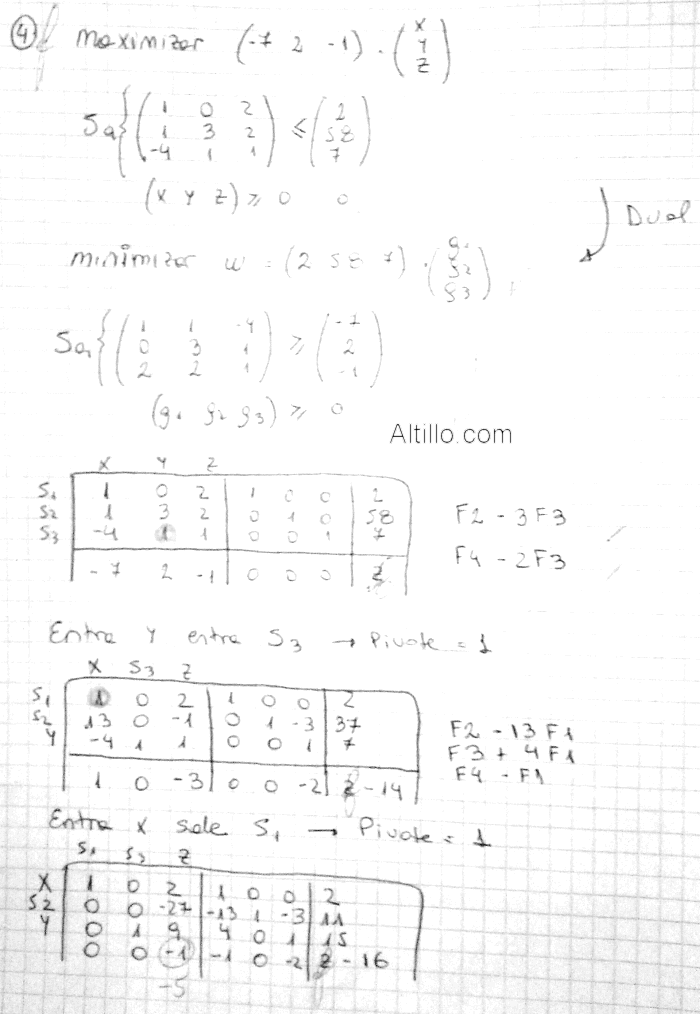 4) Maximizar (-7 2 -1) · (x y z)
Sa { (1 0 2
1 3 2
-4 1 1) ≤ (2
58
7)
(x y z) ≥ 0 0
Dual
minimizar w = (2 58 7) · (g1 g2 g3)
Sa { (1 1 -4
0 3 1
2 2 1) ≥ (-7
2
-1)
(g1 g2 g3) ≥ 0
Altillo.com
x y z
S1 1 0 2 1 0 0 2
S2 1 3 2 0 1 0 58
S3 -4 1 1 0 0 1 7
-7 2 -1 0 0 0 z
F2 - 3F3
F4 - 2F3
Entra Y entra S3 → Pivote = 1
x S3 z
S1 1 0 2 1 0 0 2
S2 13 0 -1 0 1 -3 37
Y -4 1 1 0 0 1 7
1 0 -3 0 0 -2 z - 14
F2 - 13 F1
F3 + 4 F1
F4 - F1
Entra x sale S1 → Pivote = 1
S1 S3 z
X 1 0 2 1 0 0 2
S2 0 0 -27 -13 1 -3 11
Y 0 1 9 4 0 1 15
0 0 -1 -1 0 -2 z - 16
-5